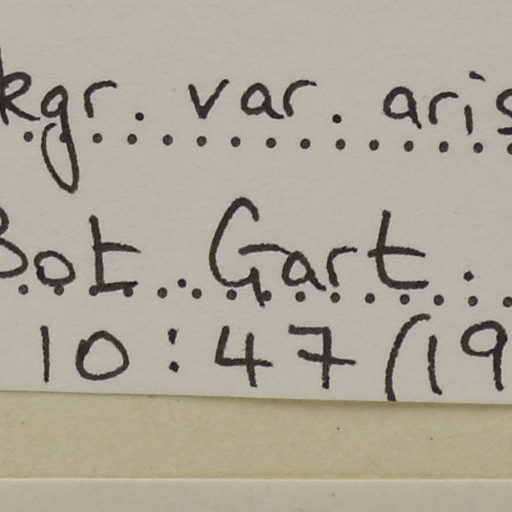 kgr. var. aris
Bot. Gart.
10:47 (19